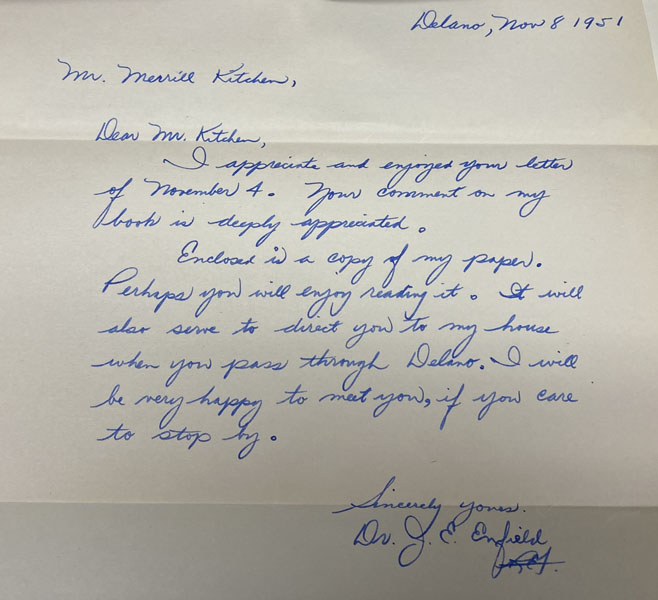 Delano, Nov 8 1951
Mr. Merrill Kitchen,
Dear Mr. Kitchen,
I appreciate and enjoyed your letter
of November 4. Your comment on my
book is deeply appreciated.
Enclosed is a copy of my paper.
Perhaps you will enjoy reading it. It will
also serve to direct you to my house
when you pass through Delano. I will
be very happy to meet you, if you care
to stop by.
Sincerely yours.
Dr. J. E. Enfield